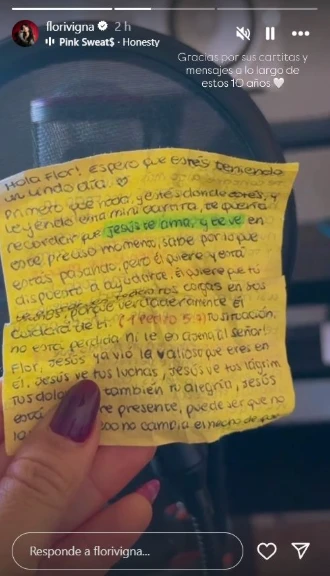 florivigna 2 h
Pink Sweat$ • Honesty
Gracias por sus cartitas y
mensajes a lo largo de
estos 10 años 🤍
Hola Flor! Espero que estés teniendo
un lindo día ♡
Primero que nada, gentes donde estés, y
leyendo esta mini cartita, te quería
recordar que Jesús te ama, y te ve en
este preciso momento, sabe por lo que
estás pasando, pero Él quiere y está
dispuesto a ayudarte. Él quiere que tú
cosas en sus
porque verdaderamente Él
cuida de ti. (1 Pedro 5:7) Tu situación,
no está perdida ni le es ajena al Señor!
Flor, Jesús ya vió lo valiosa que eres en
Él. Jesús ve tus luchas, Jesús ve tus lágrim
tus dolo también tu alegría, Jesús
está presente, puede ser que no
no cambia el hecho de
Responde a florivigna...